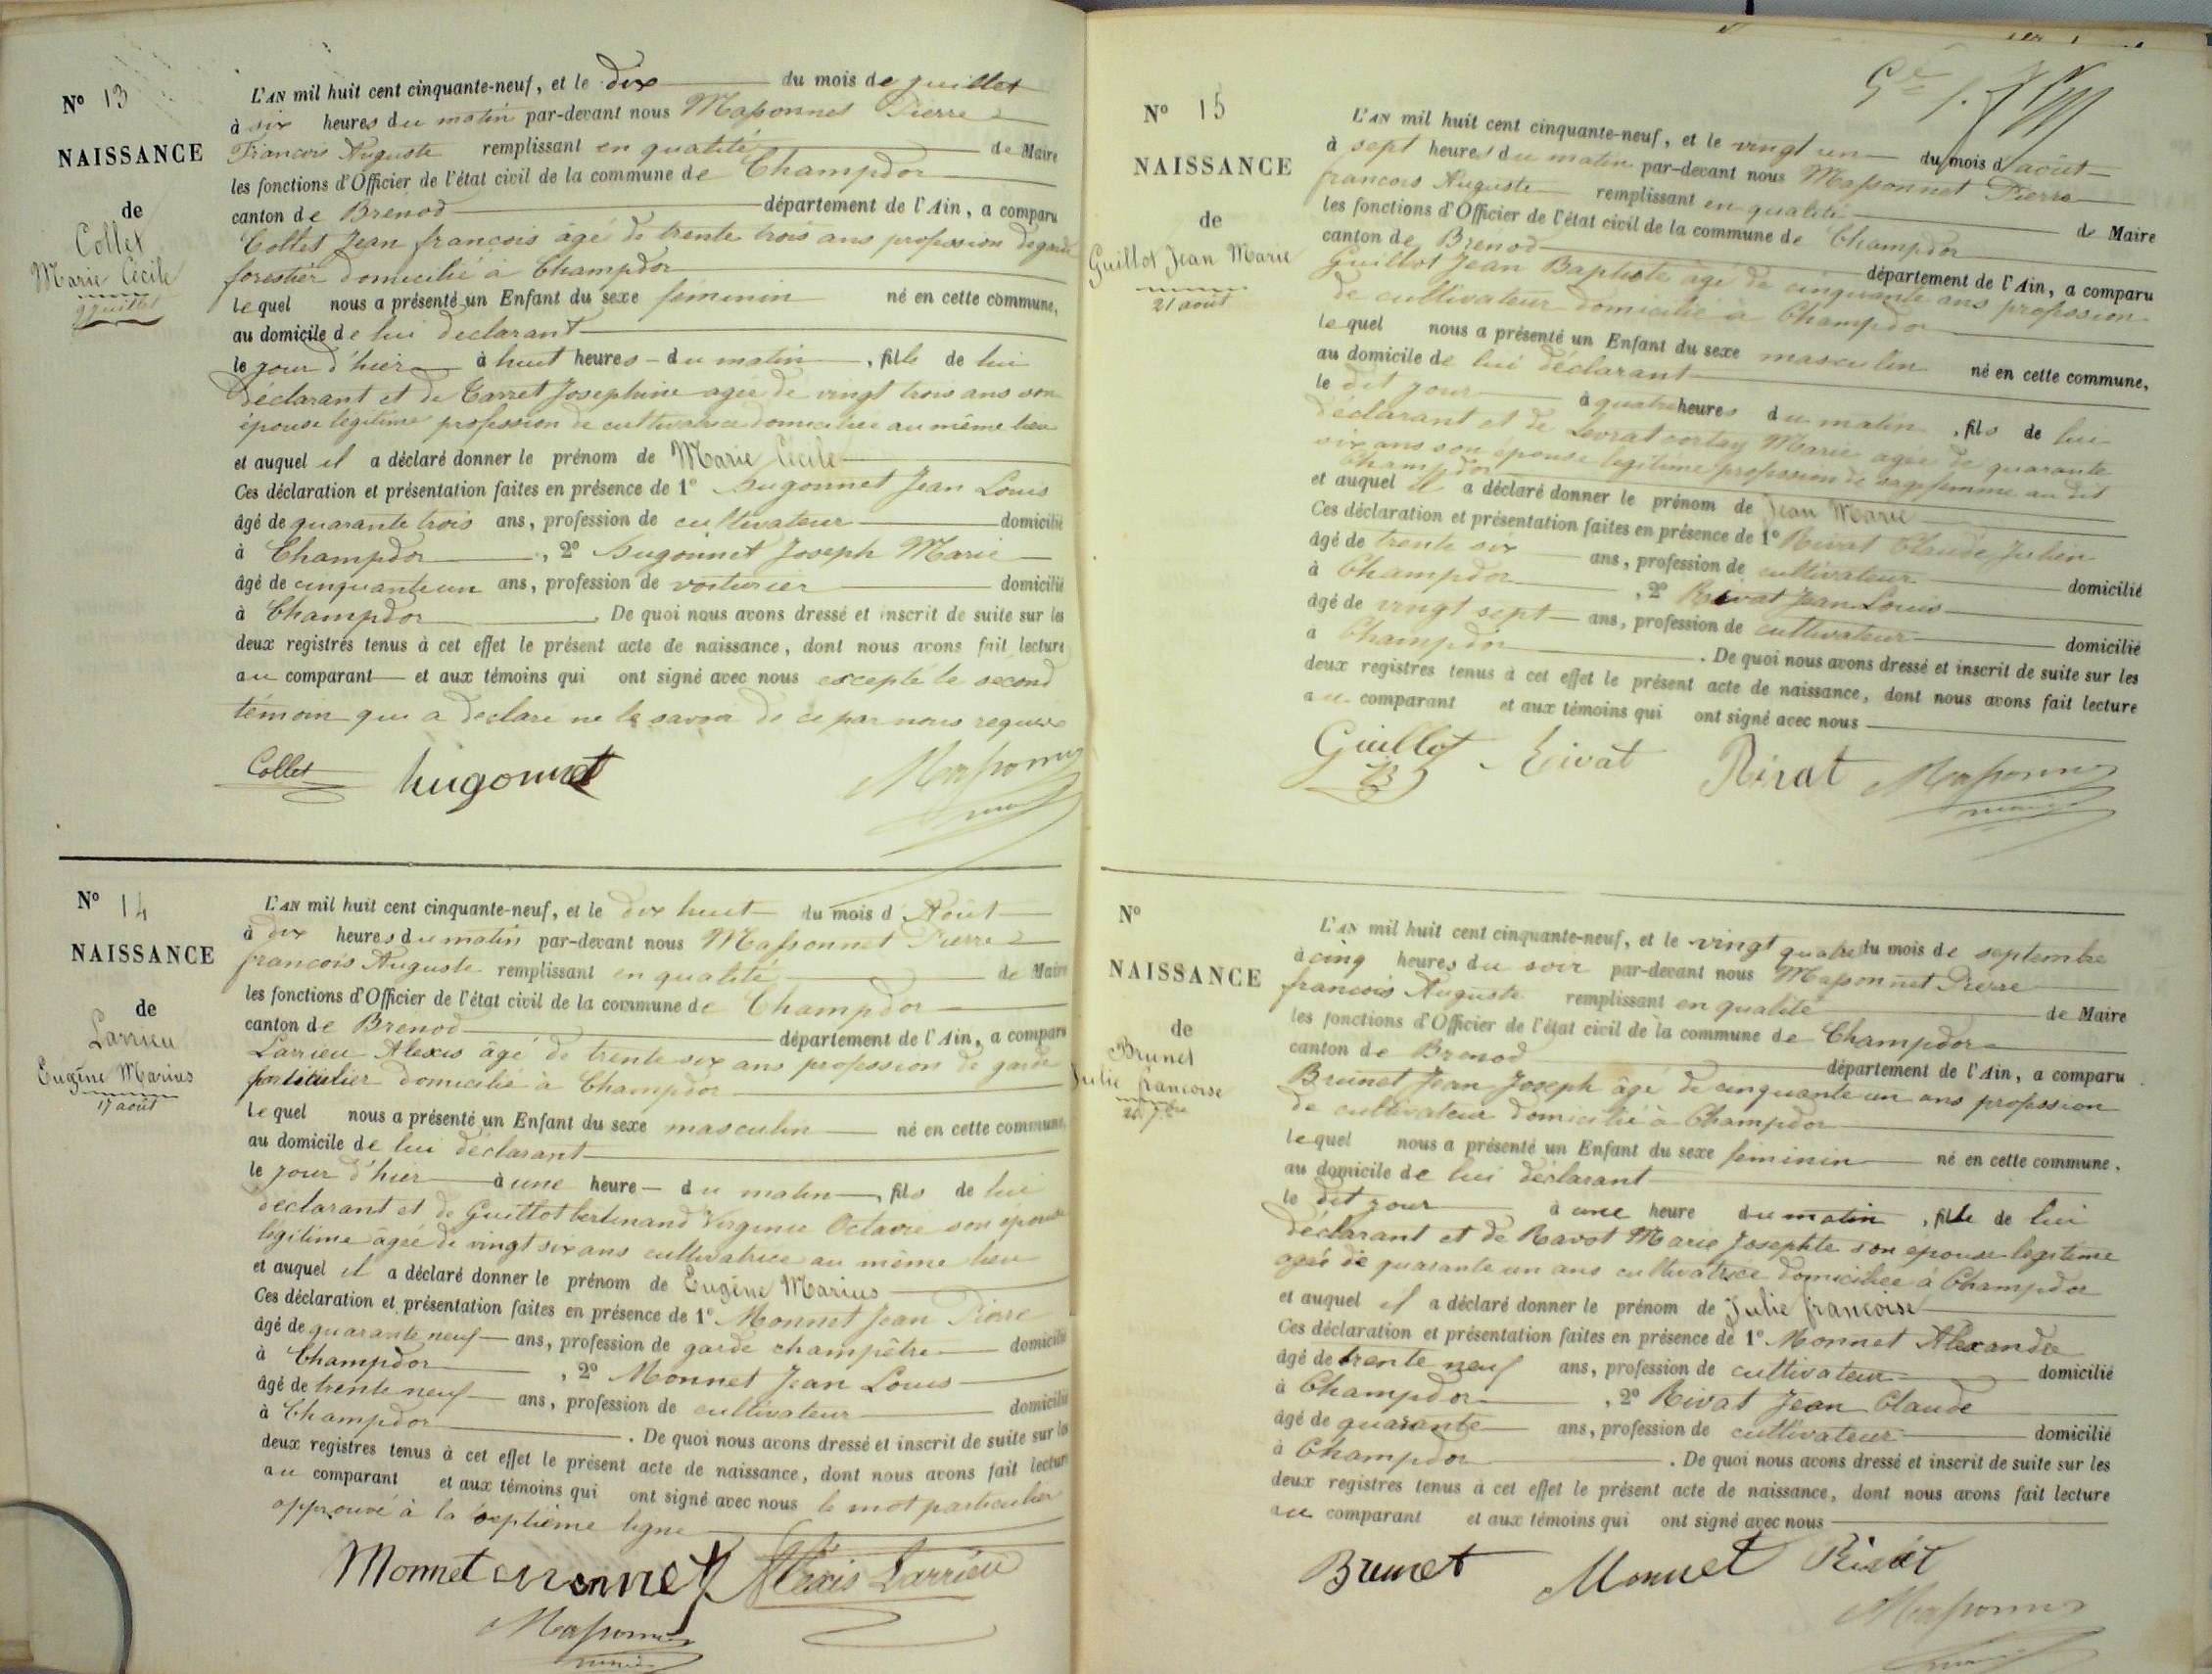 N° 13
NAISSANCE
de
Collet
Marie Cécile
9 juillet
L'AN mil huit cent cinquante-neuf, et le dix du mois de juillet
à six heures du matin par-devant nous Massonnet Pierre
François Auguste remplissant en qualité de Maire
les fonctions d'Officier de l'état civil de la commune de Champdor
canton de Brenod département de l'Ain, a comparu
Collet Jean françois âgé de trente trois ans profession de garde
forestier domicilié à Champdor
lequel nous a présenté un Enfant du sexe féminin né en cette commune,
au domicile de lui déclarant
le jour d'hier à huit heures du matin, fille de lui
déclarant et de Carret Josephine agée de vingt trois ans son
épouse légitime profession de cultivatrice domiciliée au même lieu
et auquel il a déclaré donner le prénom de Marie Cécile
Ces déclaration et présentation faites en présence de 1° hugonnet Jean Louis
âgé de quarante trois ans, profession de cultivateur domicilié
à Champdor, 2° hugonnet Joseph Marie
âgé de cinquante un ans, profession de voiturier domicilié
à Champdor. De quoi nous avons dressé et inscrit de suite sur les
deux registres tenus à cet effet le présent acte de naissance, dont nous avons fait lecture
au comparant et aux témoins qui ont signé avec nous excepté le second
témoin qui a déclaré ne le savoir de ce par nous requis
Collet hugonnet Massonnet
N° 14
NAISSANCE
de
Larrieu
Eugène Marius
17 août
L'AN mil huit cent cinquante-neuf, et le dix huit du mois d'Août
à dix heures du matin par-devant nous Massonnet Pierre
françois Auguste remplissant en qualité de Maire
les fonctions d'Officier de l'état civil de la commune de Champdor
canton de Brenod département de l'Ain, a comparu
Larrieu Alexis âgé de trente six ans profession de garde
particulier domicilié à Champdor
lequel nous a présenté un Enfant du sexe masculin né en cette commune,
au domicile de lui déclarant
le jour d'hier à une heure du matin, fils de lui
déclarant et de Guillot bertinand Virginie Octavie son épouse
légitime âgée de vingt six ans cultivatrice au même lieu
et auquel il a déclaré donner le prénom de Eugène Marius
Ces déclaration et présentation faites en présence de 1° Monnet Jean Pierre
âgé de quarante neuf ans, profession de garde champêtre domicilié
à Champdor, 2° Monnet Jean Louis
âgé de trente neuf ans, profession de cultivateur domicilié
à Champdor. De quoi nous avons dressé et inscrit de suite sur les
deux registres tenus à cet effet le présent acte de naissance, dont nous avons fait lecture
au comparant et aux témoins qui ont signé avec nous le mot particulier
approuvé à la septième ligne
Monnet Monnet Alexis Larrieu
Massonnet
N° 15
NAISSANCE
de
Guillot Jean Marie
21 août
L'AN mil huit cent cinquante-neuf, et le vingt un du mois d'août
à sept heures du matin par-devant nous Massonnet Pierre
françois Auguste remplissant en qualité de Maire
les fonctions d'Officier de l'état civil de la commune de Champdor
canton de Brénod département de l'Ain, a comparu
Guillot Jean Baptiste âgé de cinquante ans profession
de cultivateur domicilié à Champdor
lequel nous a présenté un Enfant du sexe masculin né en cette commune,
au domicile de lui déclarant
le dit jour à quatre heures du matin, fils de lui
déclarant et de Levrat cortay Marie agée de quarante
six ans son épouse légitime profession de sage femme au dit
Champdor
et auquel il a déclaré donner le prénom de Jean Marie
Ces déclaration et présentation faites en présence de 1° Rivat Claude Julien
âgé de trente six ans, profession de cultivateur domicilié
à Champdor, 2° Rivat Jean Louis
âgé de vingt sept ans, profession de cultivateur domicilié
à Champdor. De quoi nous avons dressé et inscrit de suite sur les
deux registres tenus à cet effet le présent acte de naissance, dont nous avons fait lecture
au comparant et aux témoins qui ont signé avec nous
Guillot JB Rivat Rivat Massonnet
N°
NAISSANCE
de
Brunet
Julie francoise
24 7bre
L'AN mil huit cent cinquante-neuf, et le vingt quatre du mois de septembre
à cinq heures du soir par-devant nous Massonnet Pierre
francois Auguste remplissant en qualité de Maire
les fonctions d'Officier de l'état civil de la commune de Champdor
canton de Brenod département de l'Ain, a comparu
Brunet Jean Joseph âgé de cinquante un ans profession
de cultivateur domicilié à Champdor
lequel nous a présenté un Enfant du sexe féminin né en cette commune,
au domicile de lui déclarant
le dit jour à une heure du matin, fille de lui
déclarant et de Ravot Marie Josephte son épouse légitime
agée de quarante un ans cultivatrice domiciliée à Champdor
et auquel il a déclaré donner le prénom de Julie francoise
Ces déclaration et présentation faites en présence de 1° Monnet Alexandre
âgé de trente neuf ans, profession de cultivateur domicilié
à Champdor, 2° Rivat Jean Claude
âgé de quarante ans, profession de cultivateur domicilié
à Champdor. De quoi nous avons dressé et inscrit de suite sur les
deux registres tenus à cet effet le présent acte de naissance, dont nous avons fait lecture
au comparant et aux témoins qui ont signé avec nous
Brunet Monnet Rivat
Massonnet